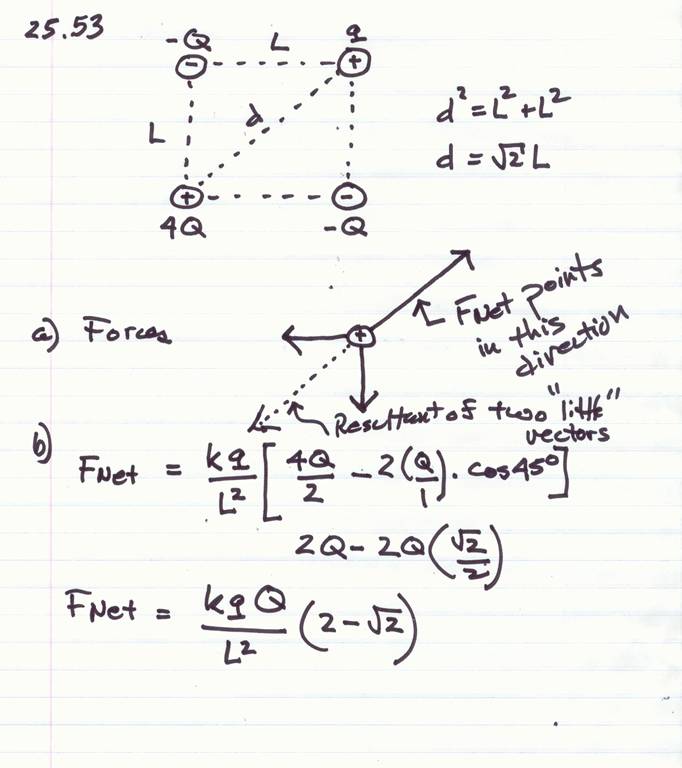 25.53
-Q L q
L d
d² = L² + L²
d = √2 L
4Q -Q
a) Forces
FNet points
in this
direction
Resultant of two "little"
vectors
b)
FNet = kq/L² [ 4Q/2 - 2(Q/1) · cos45° ]
2Q - 2Q (√2/2)
FNet = kqQ/L² (2 - √2)